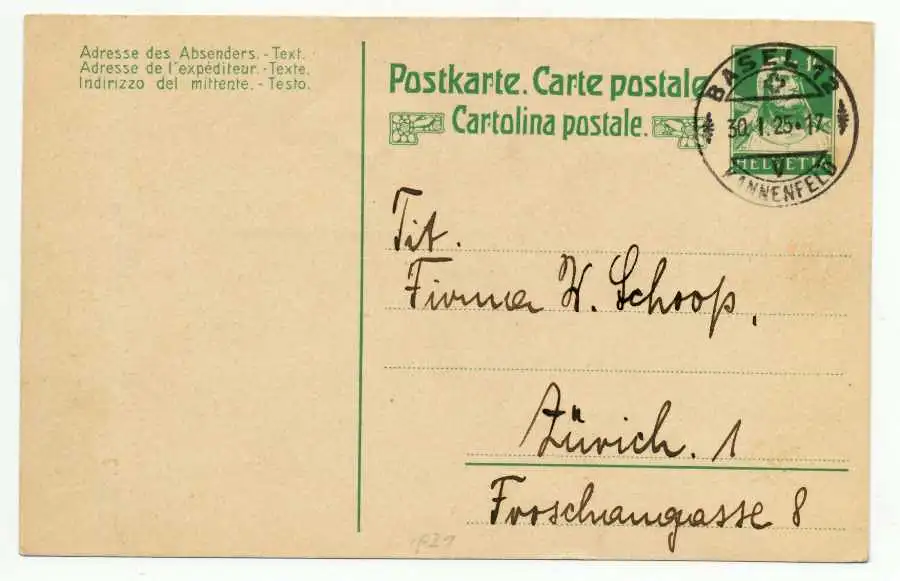 Adresse des Absenders. - Text.
Adresse de l'expéditeur. - Texte.
Indirizzo del mittente. - Testo.
Postkarte. Carte postale
Cartolina postale.
BASEL 12
30. I. 25 • 17
V
KANNENFELD
HELVETIA
Tit.
Firma W. Schoop,
Zürich. 1
Froschaugasse 8